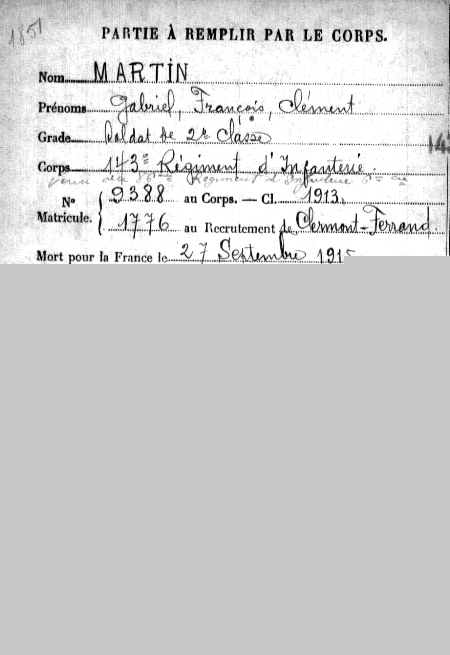 1851
PARTIE À REMPLIR PAR LE CORPS.
Nom MARTIN
Prénoms Gabriel, François, Clément
Grade Soldat de 2e Classe
Corps 143e Régiment d'Infanterie.
venu du 86e Régiment d'Infanterie
No Matricule. { 9388 au Corps. — Cl. 1913.
1776 au Recrutement de Clermont-Ferrand
Mort pour la France le 27 Septembre 191